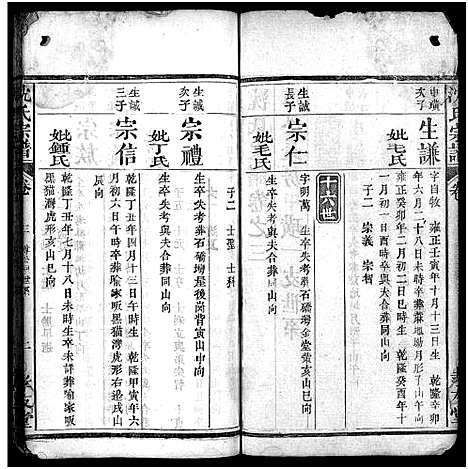 沈氏宗譜
申璜
次子
生謙
字自牧 雍正壬寅年十月十三日生 乾隆辛卯
年六月二十八日未時卒葬蔴地塲月形子山午向
妣毛氏
雍正癸卯年二月初二日巳時生 乾隆癸酉年十
一月初一日酉時卒與夫合葬同山向
子二 宗義 宗智
十六世
生誠
長子
宗仁
字明萬 生卒失考葬石礄塝金堂亥山巳向
妣毛氏
生卒失考與夫合葬同山向
生誠
次子
宗禮
生卒失考葬石礄塝屋後崗背寅山申向
妣丁氏
生卒失考與夫合葬同山向
子二 士
生誠
三子
宗信
乾隆丁丑年四月十三日午時生 乾隆甲寅年六
月初六日午時卒葬喻家畈黑猫灣虎形右邊戌山
辰向
妣鍾氏
乾隆丁丑年七月十八日未時生卒未詳葬喻家畈
黑猫灣虎形亥山巳向
沈氏宗譜
卷
三
孝友堂